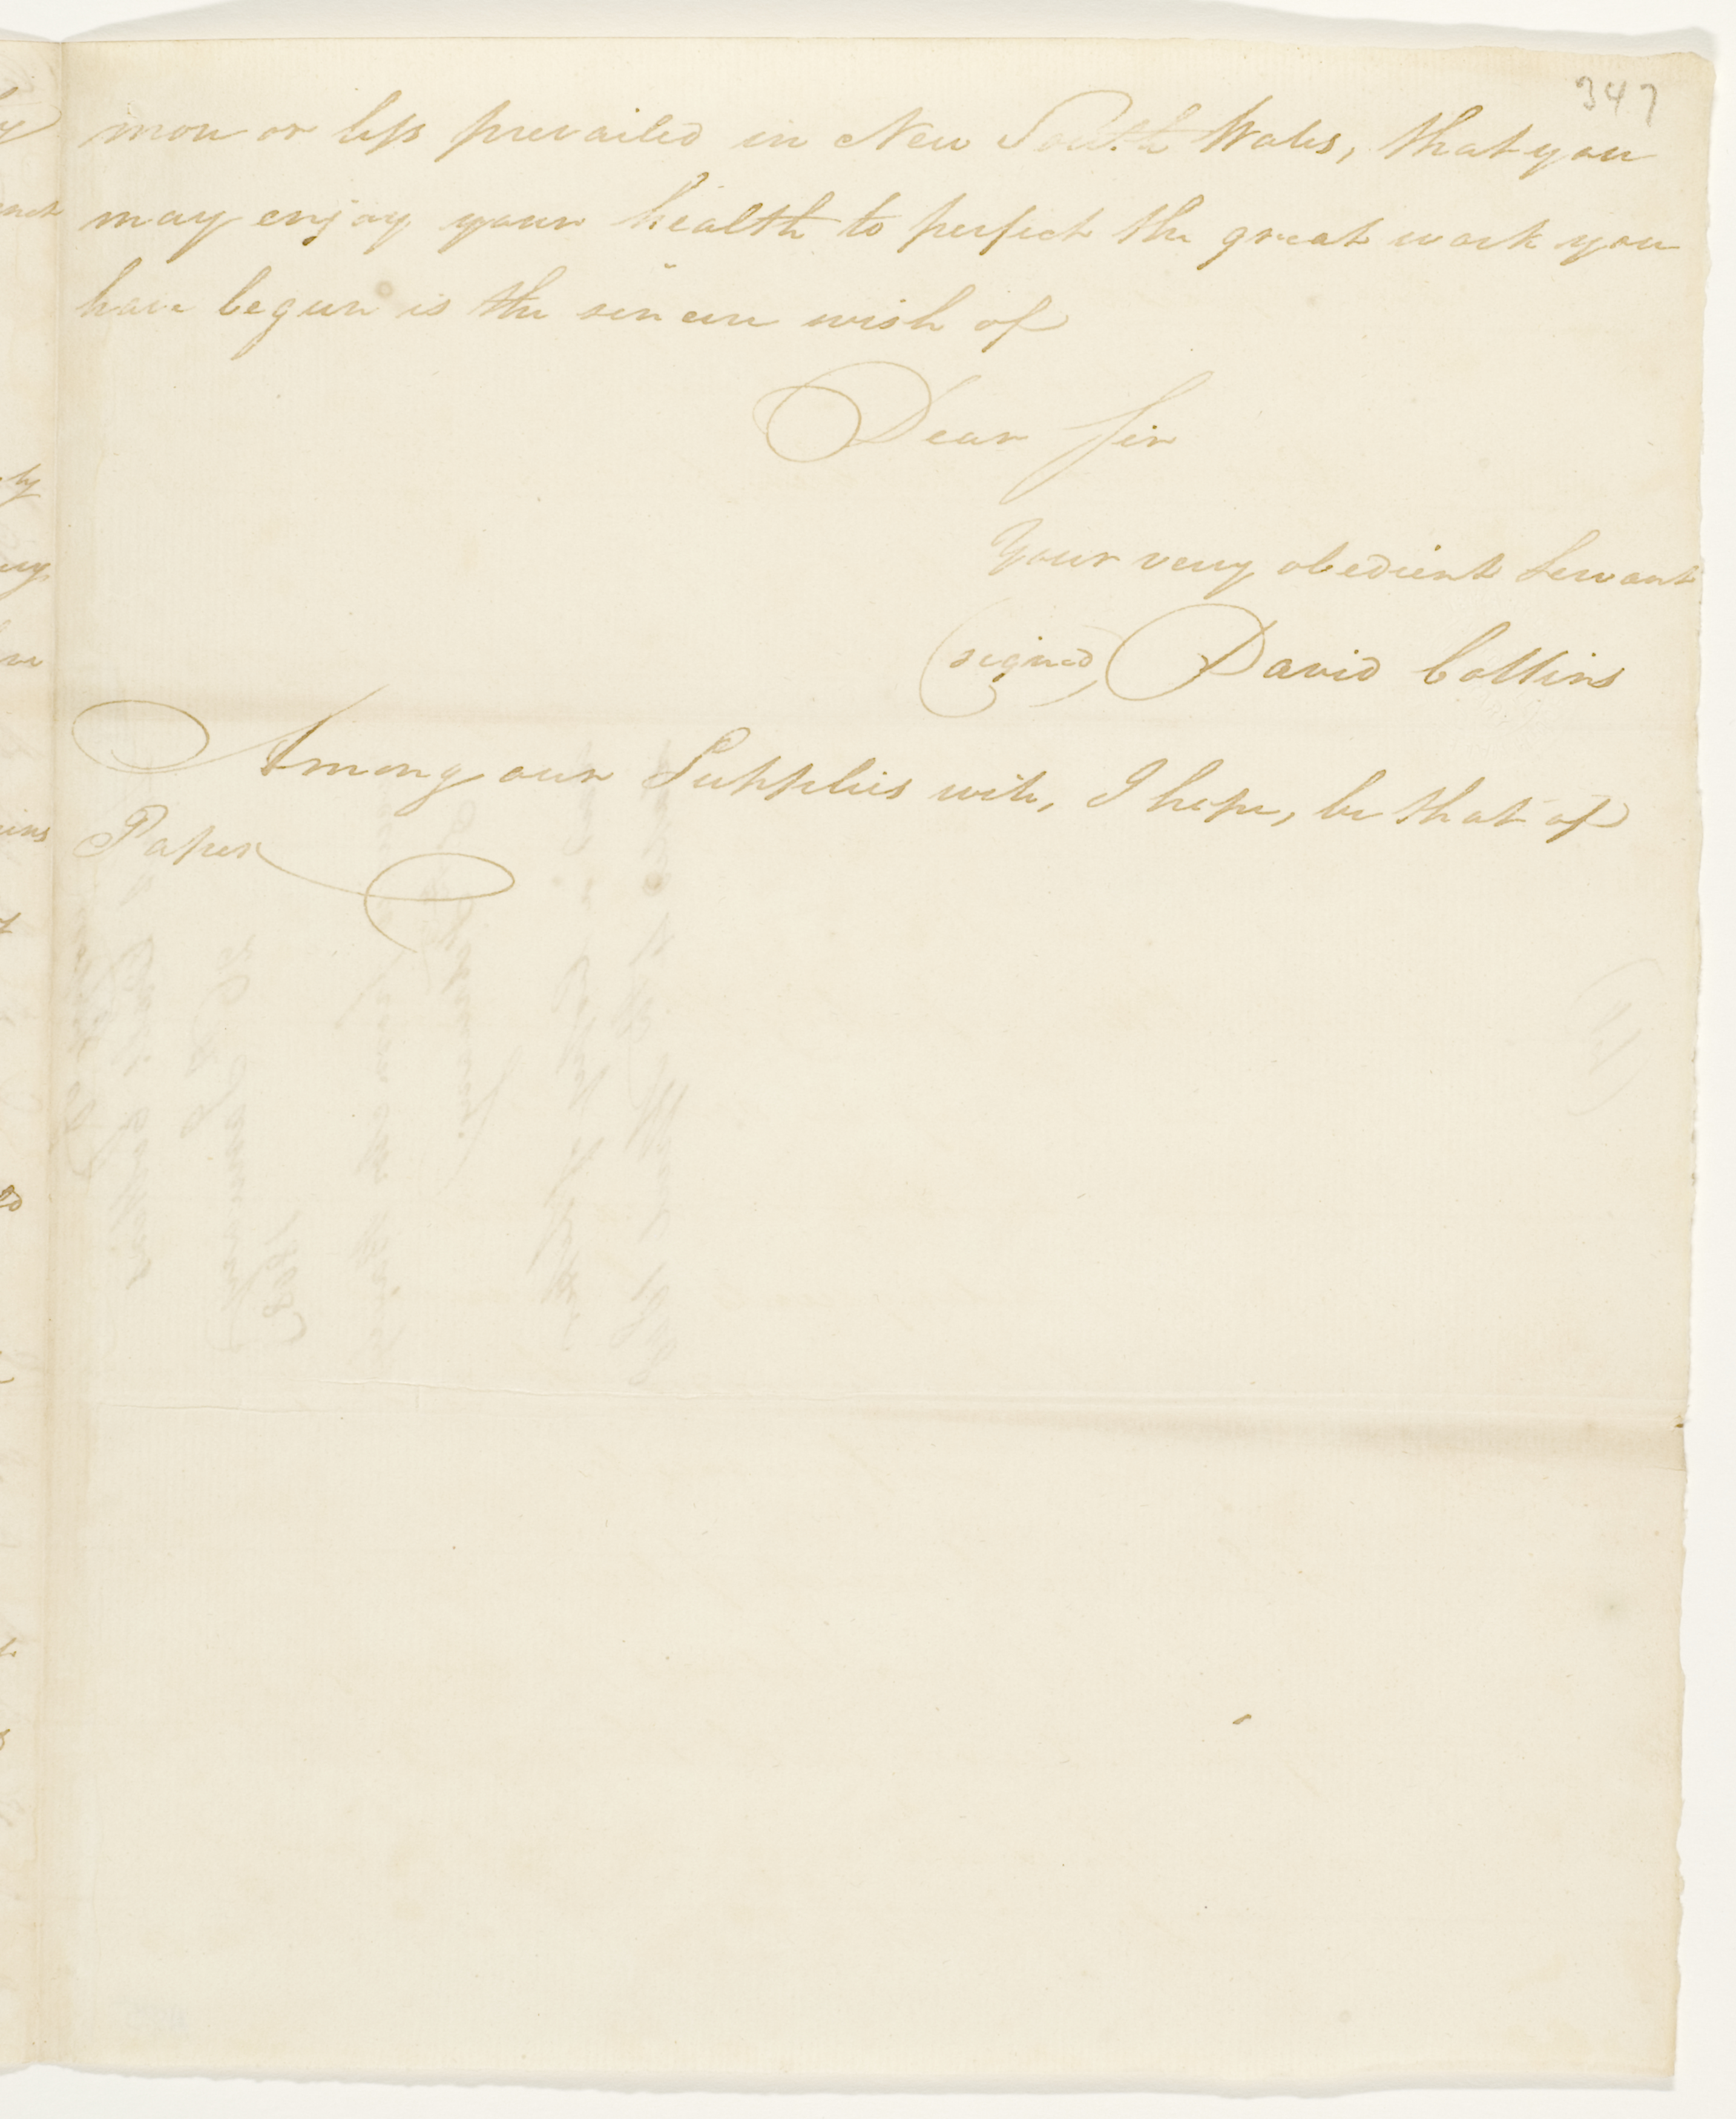 347
more or less prevailed in New South Wales, that you
may enjoy your health to perfect the great work you
have begun is the sincere wish of
Dear Sir
Your very obedient Servant
(signed) David Collins
Among our Supplies will, I hope, be that of
Paper